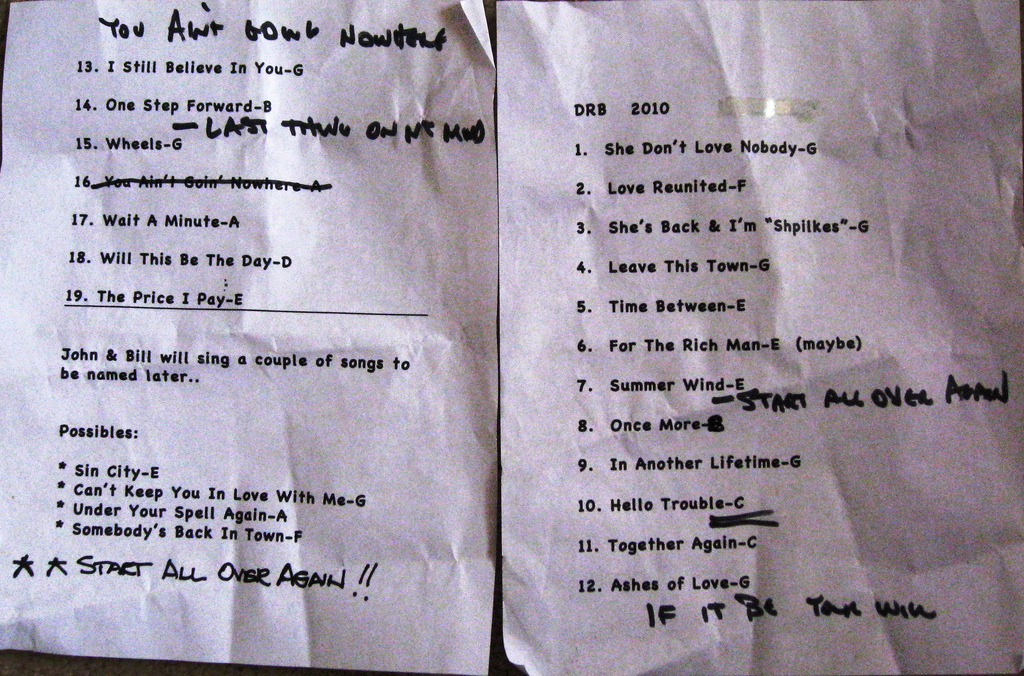 YOU AIN'T GOING NOWHERE
13. I Still Believe In You-G
14. One Step Forward-B
- LAST THING ON MY MIND
15. Wheels-G
16. You Ain't Goin' Nowhere-A
17. Wait A Minute-A
18. Will This Be The Day-D
19. The Price I Pay-E
John & Bill will sing a couple of songs to
be named later..
Possibles:
* Sin City-E
* Can't Keep You In Love With Me-G
* Under Your Spell Again-A
* Somebody's Back In Town-F
* * START ALL OVER AGAIN!!
DRB 2010
1. She Don't Love Nobody-G
2. Love Reunited-F
3. She's Back & I'm "Shpilkes"-G
4. Leave This Town-G
5. Time Between-E
6. For The Rich Man-E (maybe)
7. Summer Wind-E
- START ALL OVER AGAIN
8. Once More-B
9. In Another Lifetime-G
10. Hello Trouble-C
11. Together Again-C
12. Ashes of Love-G
IF IT BE YOUR WILL